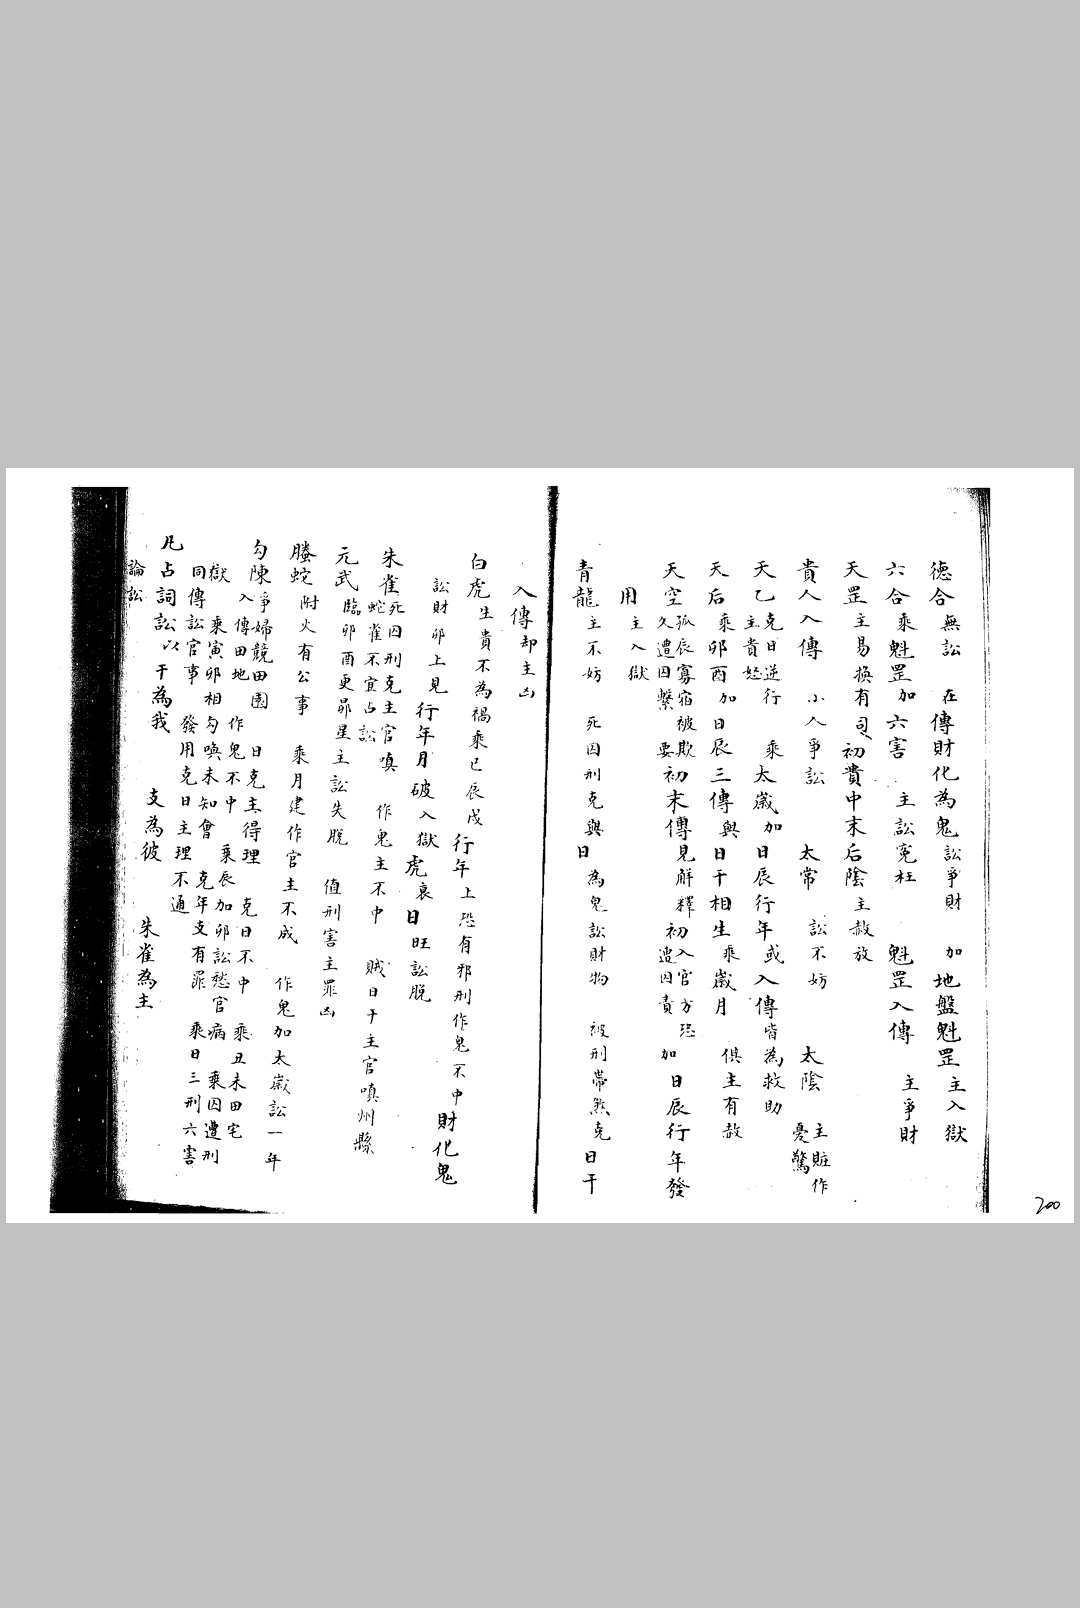 德合無訟 在傳財化為鬼訟爭財 加地盤魁罡主入獄
六合乘魁罡加六害 主訟冤枉 魁罡入傳 主爭財
天罡主易換有司初貴中末后陰主赦放
貴人入傳 小人爭訟 太常訟不妨 太陰主賍作憂驚
天乙克日逆行主貴怒 乘太歲加日辰行年或入傳皆為救助
天后乘卯酉加日辰三傳與日干相生乘歲月 俱主有赦
天空孤辰寡宿被欺久遭囚繫 要初末傳見解釋初入官方恐遭囚責加日辰行年發
用主入獄
青龍主不妨 死囚刑克與日為鬼訟財物 被刑帶煞克日干
入傳却主凶
白虎生貴不為禍乘巳辰戌行年上恐有邪刑作鬼不中財化鬼
訟財卯上見行年月破入獄虎哀日旺訟脫
朱雀死囚刑克主官嗔蛇雀不宜占訟 作鬼主不中 賊日干主官嗔州縣
元武臨卯酉更昴星主訟失脫 值刑害主罪凶
螣蛇附火有公事 乘月建作官主不成 作鬼加太歲訟一年
勾陳爭婦競田園入傳田地 日克主得理作鬼不中 克日不中 乘丑未田宅
獄乘寅卯相勾喚未知會 乘辰加卯訟愁官病乘囚遭刑
同傳訟官事 發用克日主理不通 克年支有罪 乘日三刑六害
凡占詞訟以干為我 支為彼 朱雀為主
論訟
200